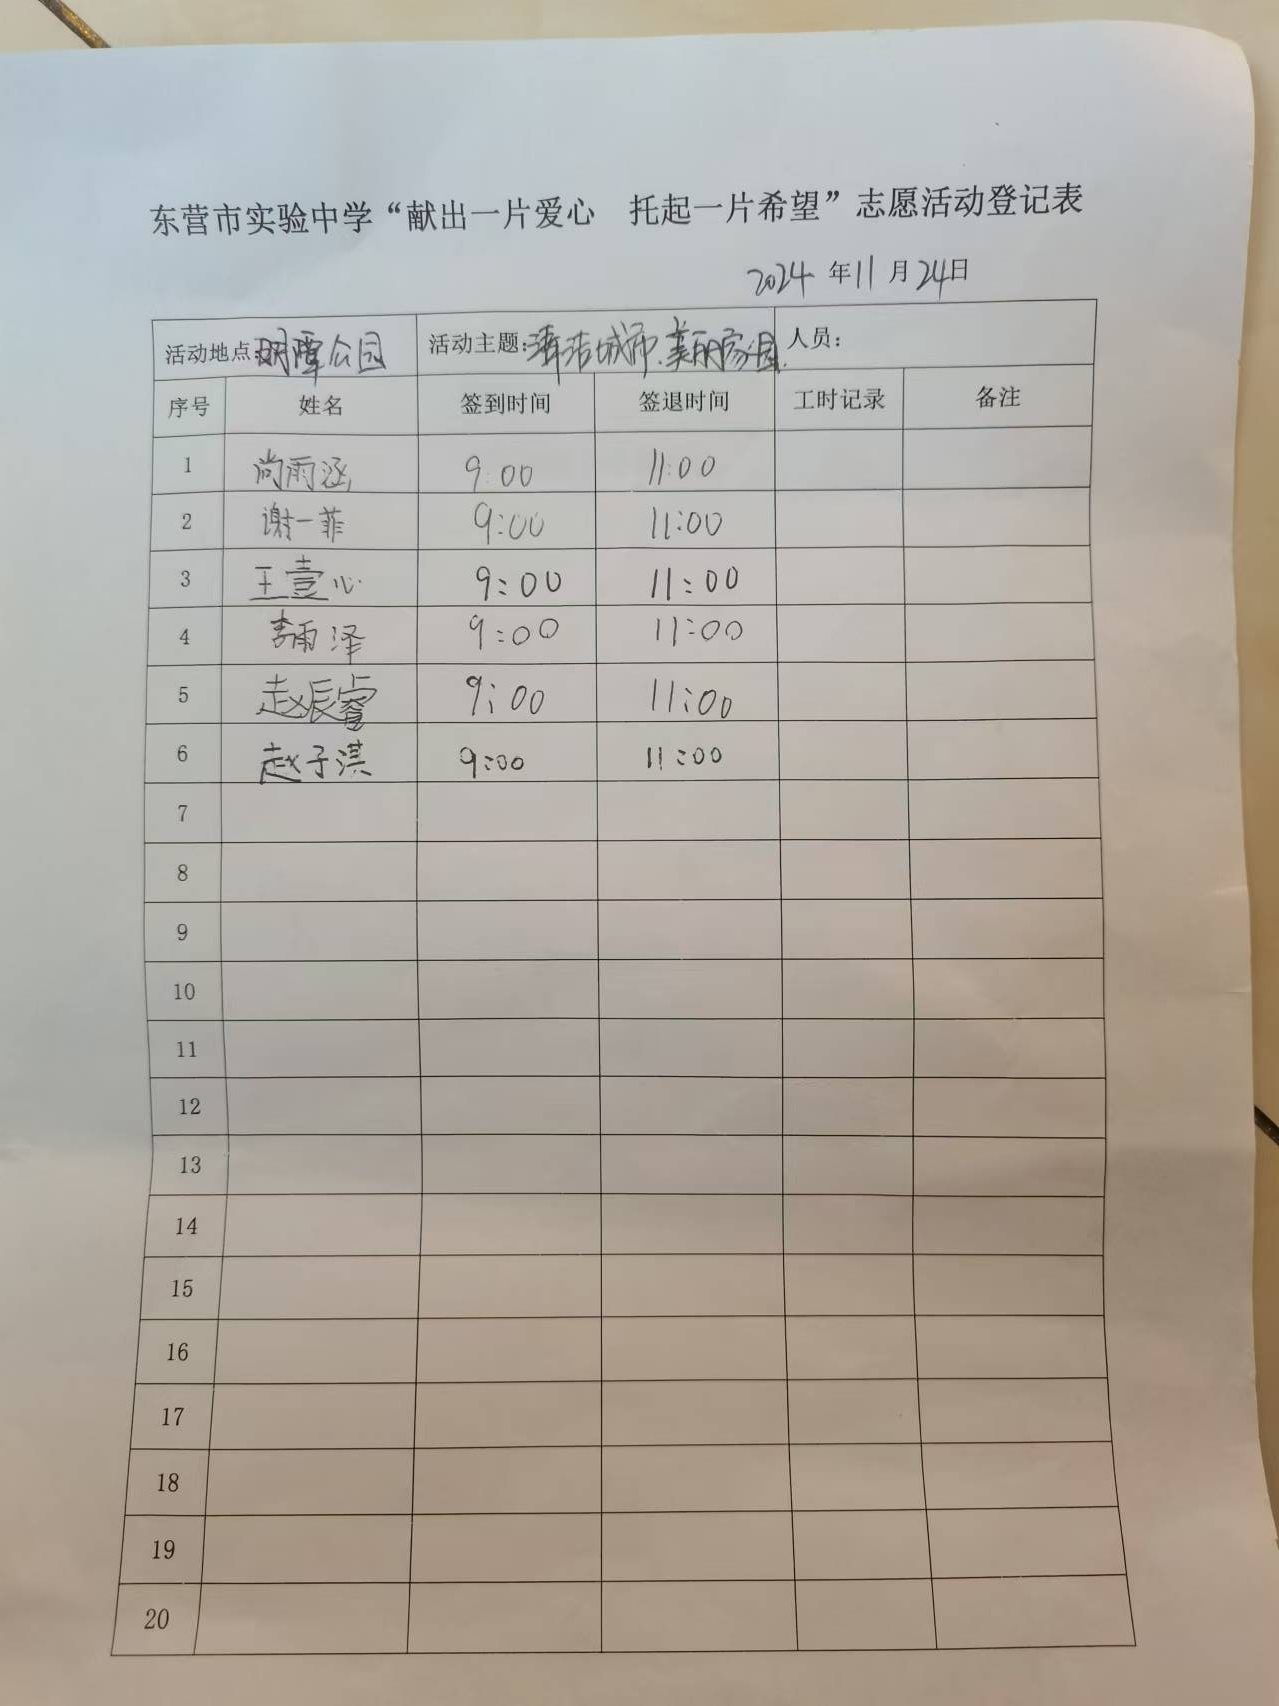 东营市实验中学“献出一片爱心 托起一片希望”志愿活动登记表
2024 年 11 月 24 日
活动地点:明潭公园 活动主题:清洁城市.美丽家园. 人员:
序号 姓名 签到时间 签退时间 工时记录 备注
1 尚雨涵 9:00 11:00
2 谢一菲 9:00 11:00
3 王壹心 9:00 11:00
4 李雨泽 9:00 11:00
5 赵辰睿 9:00 11:00
6 赵子淇 9:00 11:00
7
8
9
10
11
12
13
14
15
16
17
18
19
20